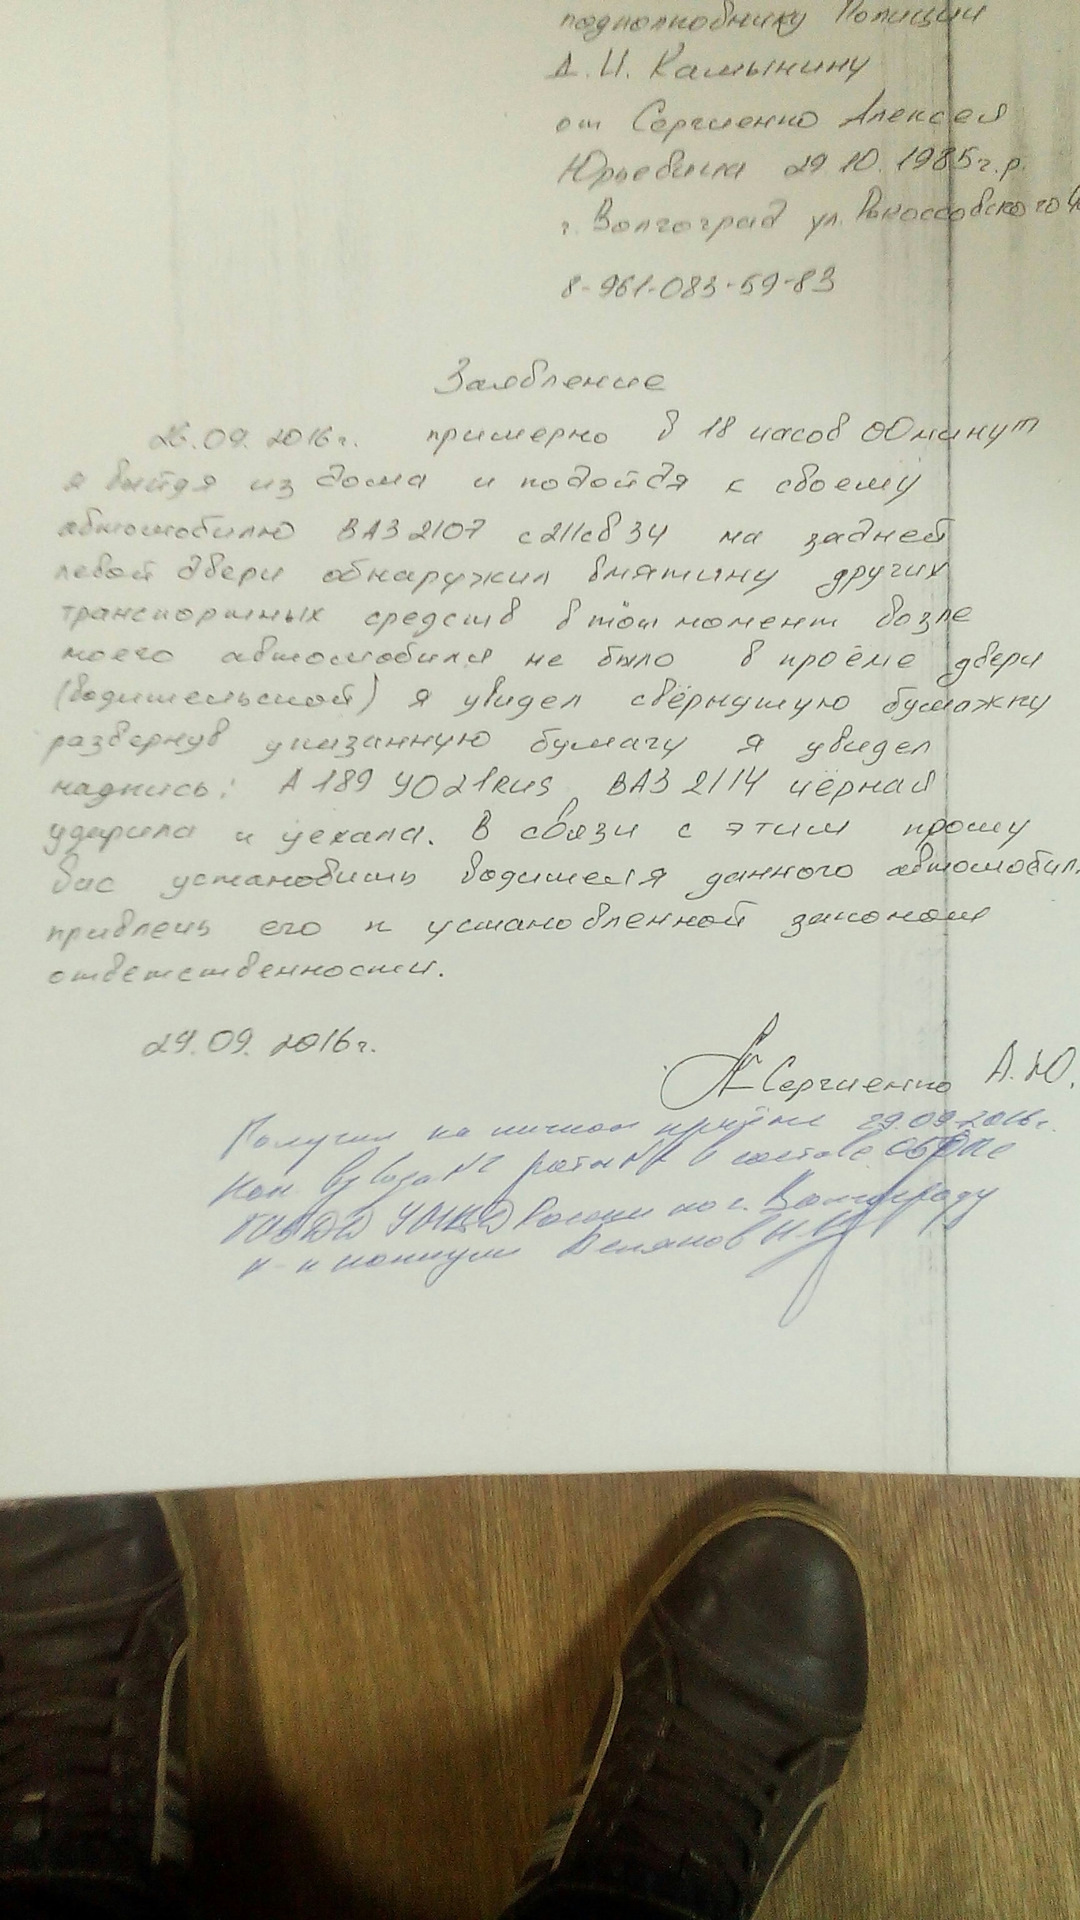 подполковнику Полиции
А.И. Камынину
от Сергиенко Алексея
Юрьевича 29.10.1985г.р.
г. Волгоград ул. Рокоссовского
8-961-083-59-83
Заявление
26.09.2016г. примерно в 18 часов 00 минут
я выйдя из дома и подойдя к своему
автомобилю ВАЗ 2107 с211св34 на задней
левой двери обнаружил вмятину других
транспортных средств в тот момент возле
моего автомобиля не было в проёме двери
(водительской) я увидел свёрнутую бумажку
развернув указанную бумагу я увидел
надпись: А189УО21RUS ВАЗ 2114 чёрная
ударила и уехала. В связи с этим прошу
вас установить водителя данного автомобил
привлечь его к установленной законом
ответственности.
29.09.2016г.
Сергиенко А.Ю.
Получил на личном приёме 29.09.2016г.
Ком. взвода №2 роты № в составе ОБДПС
ГИБДД УМВД России по г. Волгограду
к-н полиции